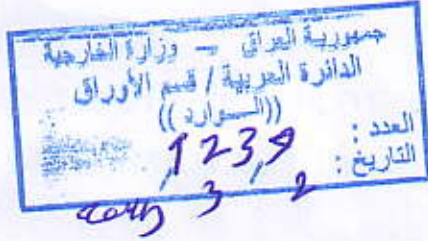 جمهورية العراق - وزارة الخارجية
الدائرة العربية / قسم الأوراق
((السوارد))
العدد : 1239
التاريخ : 2 3